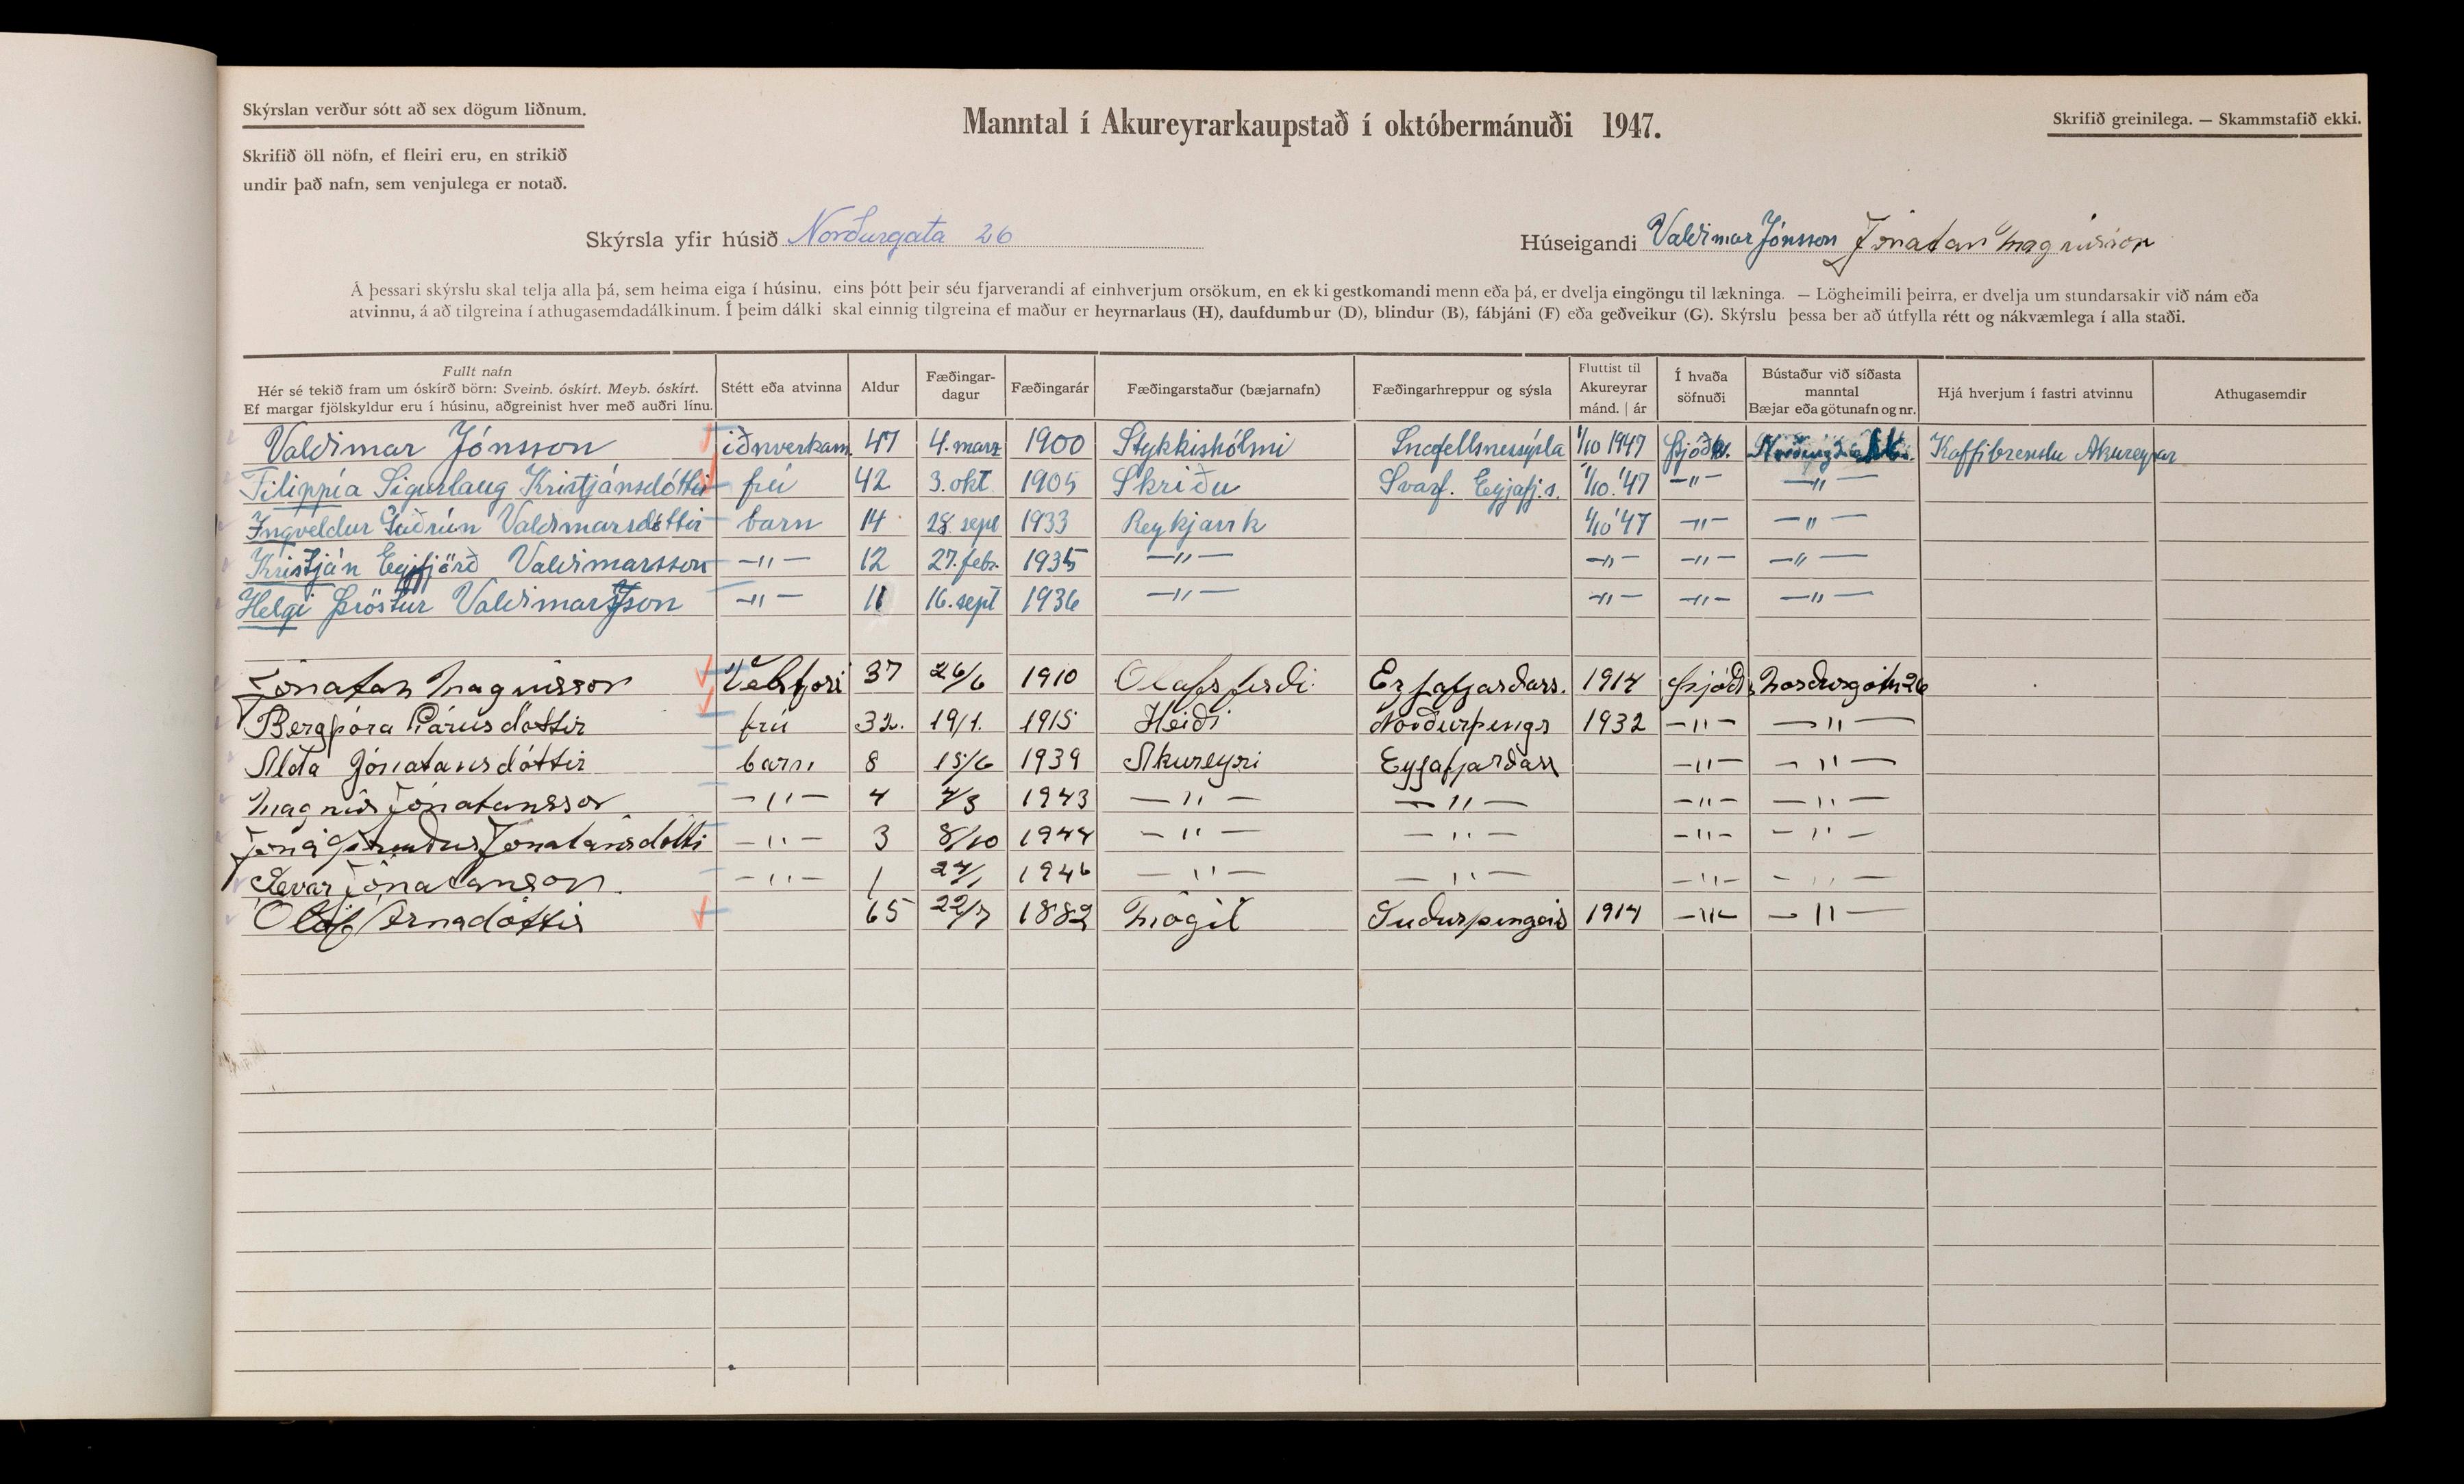 Skýrslan verður sótt að sex dögum liðnum.
Manntal í Akureyrarkaupstað í októbermánuði 1947.
Skrifið greinilega. — Skammstafið ekki.
Skrifið öll nöfn, ef fleiri eru, en strikið
undir það nafn, sem venjulega er notað.
Skýrsla yfir húsið Norðurgata 26
Húseigandi Valdimar Jónsson Jónatan Magnússon
Á þessari skýrslu skal telja alla þá, sem heima eiga í húsinu, eins þótt þeir séu fjarverandi af einhverjum orsökum, en ekki gestkomandi menn eða þá, er dvelja eingöngu til lækninga. — Lögheimili þeirra, er dvelja um stundarsakir við nám eða
atvinnu, á að tilgreina í athugasemdadálkinum. Í þeim dálki skal einnig tilgreina ef maður er heyrnarlaus (H), daufdumbur (D), blindur (B), fábjáni (F) eða geðveikur (G). Skýrslu þessa ber að útfylla rétt og nákvæmlega í alla staði.
Fullt nafn
Hér sé tekið fram um óskírð börn: Sveinb. óskírt. Meyb. óskírt.
Ef margar fjölskyldur eru í húsinu, aðgreinist hver með auðri línu.
Stétt eða atvinna
Aldur
Fæðingar-
dagur
Fæðingarár
Fæðingarstaður (bæjarnafn)
Fæðingarhreppur og sýsla
Fluttist til
Akureyrar
mánd. | ár
Í hvaða
söfnuði
Bústaður við síðasta
manntal
Bæjar eða götunafn og nr.
Hjá hverjum í fastri atvinnu
Athugasemdir
Valdimar Jónsson iðnverkam. 47 4. marz 1900 Stykkishólmi Snæfellsnessýsla 1/10 1947 Þjóðk. Kaffibrenslu Akureyrar
Filippía Sigurlaug Kristjánsdóttir frú 42 3. okt 1905 Skriðu Svarf. Eyjafj.s. 1/10 '47 —"— —"—
Ingveldur Guðrún Valdimarsdóttir barn 14 28 sept 1933 Reykjavík 1/10 '47 —"— —"—
Kristján Eyfjörð Valdimarsson —"— 12 27. febr. 1935 —"— —"— —"— —"—
Helgi Þröstur Valdimarsson —"— 11 16. sept 1936 —"— —"— —"— —"—
Jónatan Magnússon Vélstjori 37 26/6 1910 Olafsfirði Eyjafjarðars. 1914 Þjóðk Norðurgötu 26
Bergþóra Lárusdóttir frú 32. 19/1. 1915 Heiði Norðurþings 1932 —"— —"—
Alda Jónatansdóttir barn 8 15/6 1939 Akureyri Eyjafjarðars —"— —"—
Magnús Jónatansson —"— 4 4/3 1943 —"— —"— —"— —"—
Jóna Jónatansdótti —"— 3 8/10 1944 —"— —"— —"— —"—
Sævar Jónatansson. —"— 1 27/1 1946 —"— —"— —"— —"—
Ólöf Árnadóttir 65 22/7 1882 Mógil Suðurþingeis 1914 —"— —"—